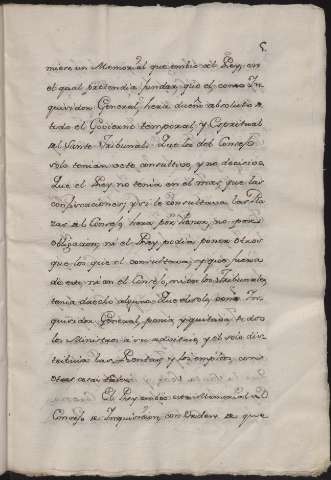 5
niere un Memorial que embio al Rey, en
el qual pretendia fundar, que el como In
quisidor General, hera dueño absoluto de
todo el Govierno temporal, y Espiritual
del Santo Tribunal: Que los del Consejo
solo tenian voto consultivo, y no decisivo
Que el Rey no tenia en el mas que las
confiscaciones; y si le consultava las Pla
zas del Consejo hera por honor, no por
obligacion, ni el Rey podia poner otros
que los que el consultava; y que fuera
de esto, ni en el Consejo, ni en los Tribunales
tenia dro alguno; Que el solo, como In
quisidor General, ponia y quitava todos
los Ministros a su advitrio, y el solo dis
tribuia las Rentas, y los empleos, con
otras cosas
El Rey embio este Memorial al
Consejo de Inquisicion, con orden de que